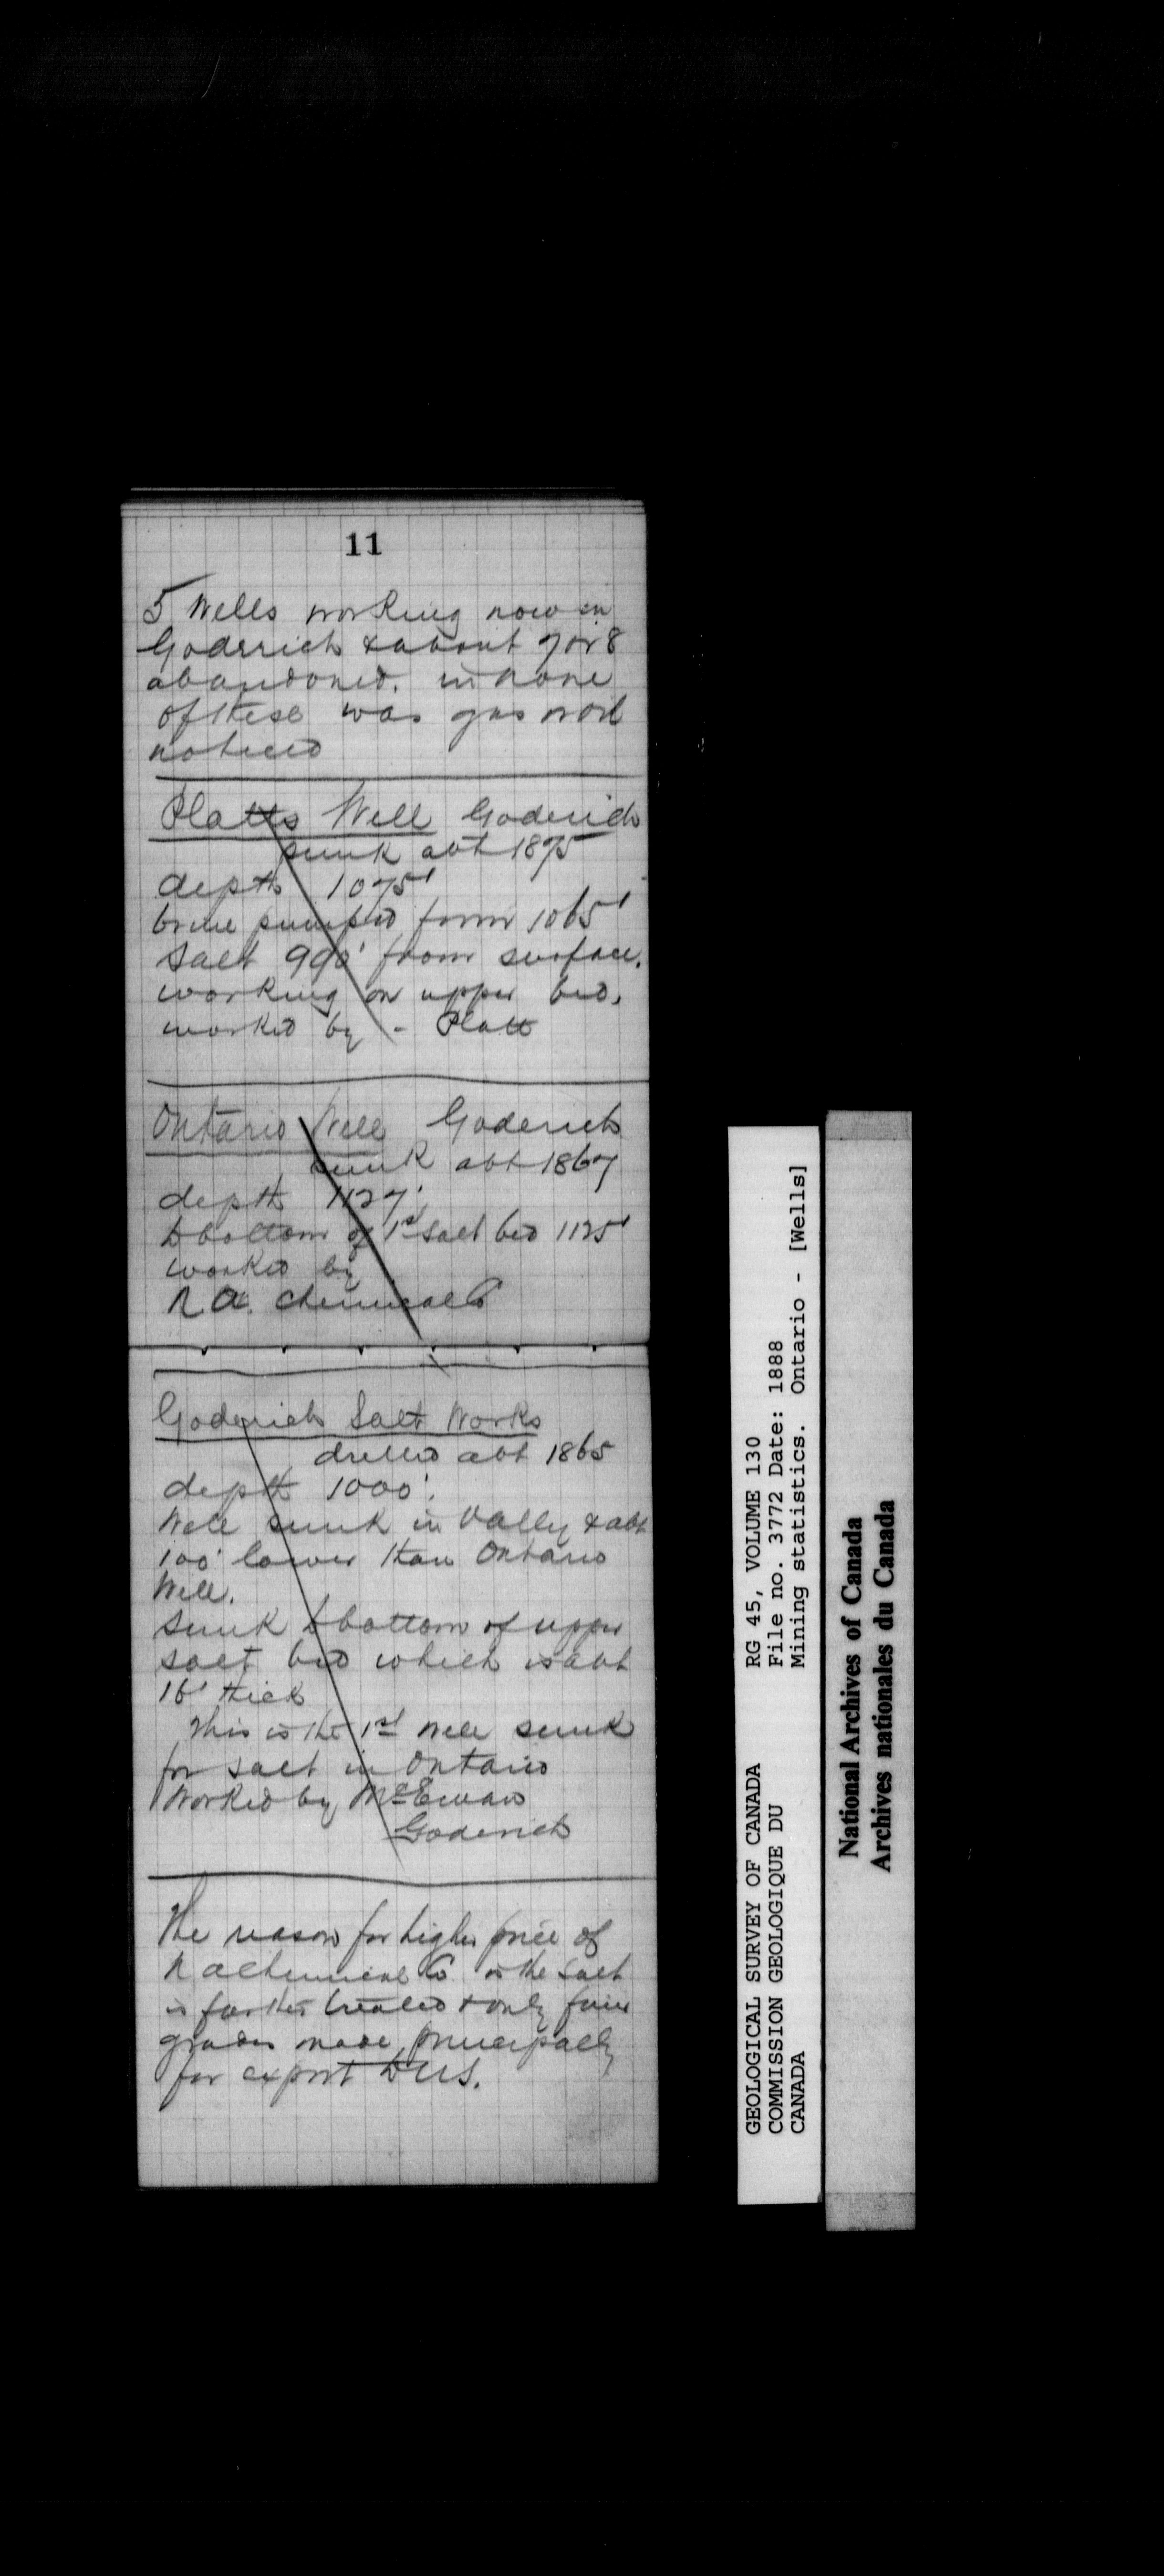 11
5 Wells working now in
Goderich & about 7 or 8
abandoned. in none
of these was gas or oil
noticed
Platts Well Goderich
sunk abt 1875
depth 1075'
brine pumped from 1065'
Salt 990' from surface.
working on upper bed.
worked by - Platt
Ontario Well Goderich
sunk abt 1867
depth 1127'
to bottom of 1st salt bed 1125'
worked by
N A. Chemical Co
Goderich Salt Works
drilled abt 1865
depth 1000'.
Well sunk in Vally & abt
100' lower than Ontario
Well.
Sunk to bottom of upper
salt bed which is abt
16' thick
This is the 1st Well sunk
for salt in Ontario
Worked by McEwan
Goderich
The reason for higher price of
N A Chemical Co is the salt
is further treated & only finer
grades made, principally
for export to U.S.
GEOLOGICAL SURVEY OF CANADA
COMMISSION GEOLOGIQUE DU
CANADA
RG 45, VOLUME 130
File no. 3772 Date: 1888
Mining statistics. Ontario - [Wells]
National Archives of Canada
Archives nationales du Canada